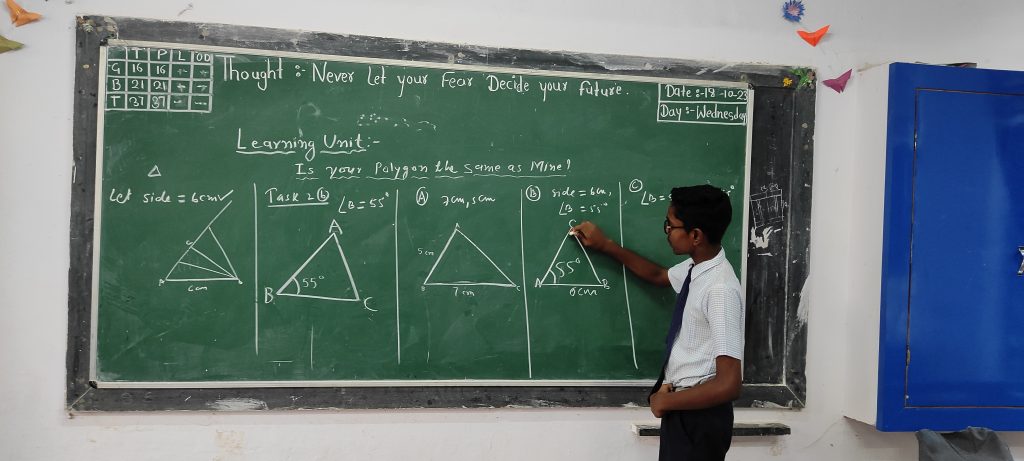 T P L OD
G 16 16 - -
B 21 21 + -
T 37 37 - -
Thought :- Never let your Fear Decide your future.
Date:-18-10-23
Day:-Wednesday
Learning Unit:-
Is your Polygon the same as Mine?
Let side = 6cm
6cm
Task 2 (b)
∠B = 55°
A
55°
B C
(A) 7cm, 5cm
A
5cm
B 7cm C
(B) side = 6cm,
∠B = 55°
C
55°
A 6cm B
(C)
∠B = 5